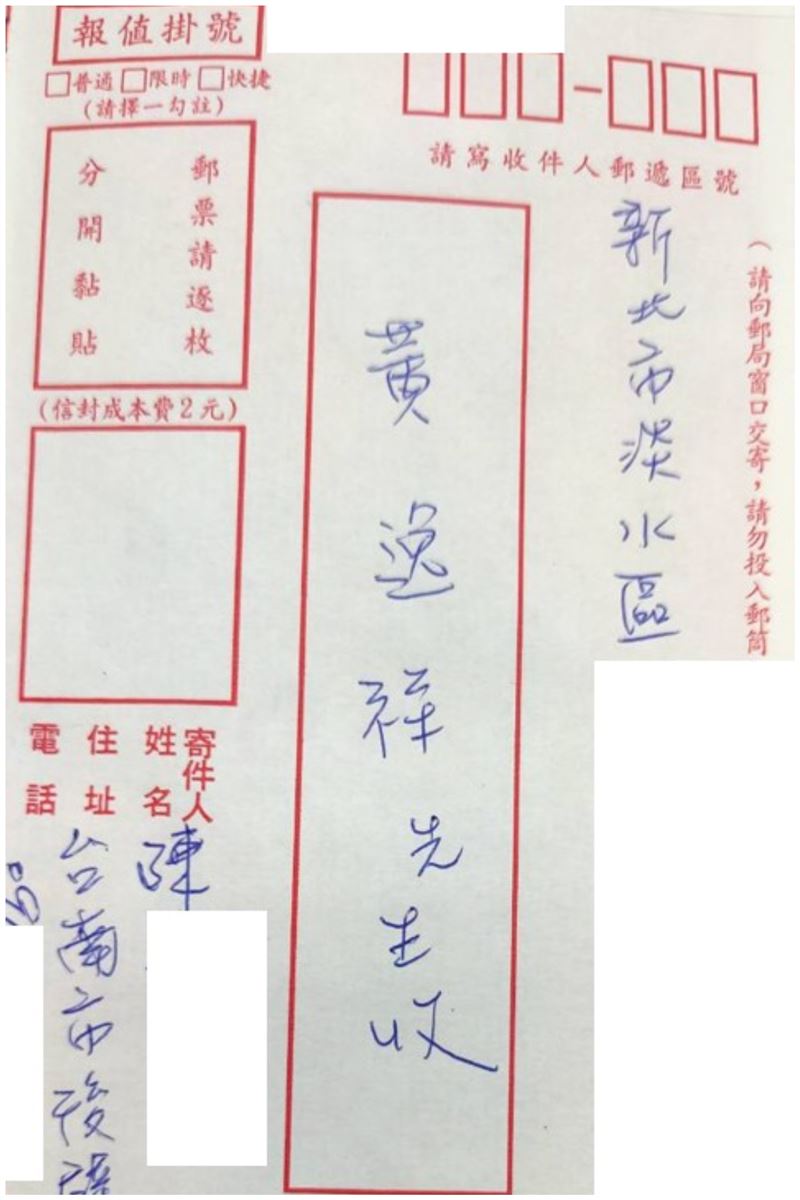 報值掛號
□普通□限時□快捷
(請擇一勾註)
郵票請逐枚
分開黏貼
(信封成本費2元)
請寫收件人郵遞區號
(請向郵局窗口交寄,請勿投入郵筒
新北市淡水區
黃逸祥先生收
寄件人
姓名
陳
住址
台南市後
電話
09